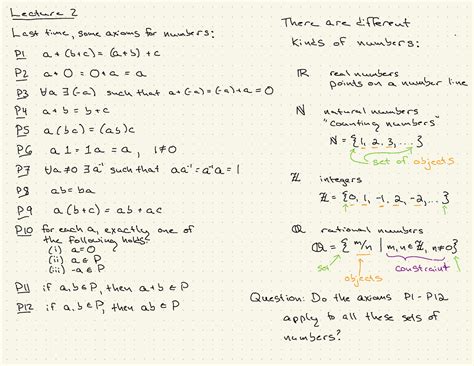 Lecture 2
Last time, some axioms for numbers:
P1 a+(b+c) = (a+b)+c
P2 a+0 = 0+a = a
P3 ∀a ∃(-a) such that a+(-a)=(-a)+a=0
P4 a+b = b+c
P5 a(bc) = (ab)c
P6 a1 = 1a = a, 1≠0
P7 ∀a≠0 ∃a⁻¹ such that aa⁻¹=a⁻¹a=1
P8 ab = ba
P9 a(b+c) = ab+ac
P10 for each a, exactly one of
the following holds:
(i) a=0
(ii) a∈P
(iii) -a∈P
P11 if a,b∈P, then a+b∈P
P12 if a,b∈P, then ab∈P
There are different
kinds of numbers:
ℝ real numbers
points on a number line
ℕ natural numbers
"counting numbers"
ℕ = {1, 2, 3, ...}
set of objects
ℤ integers
ℤ = {0, 1, -1, 2, -2, ...}
ℚ rational numbers
ℚ = { m/n | m,n∈ℤ, n≠0}
set objects constraint
Question: Do the axioms P1-P12
apply to all these sets of
numbers?